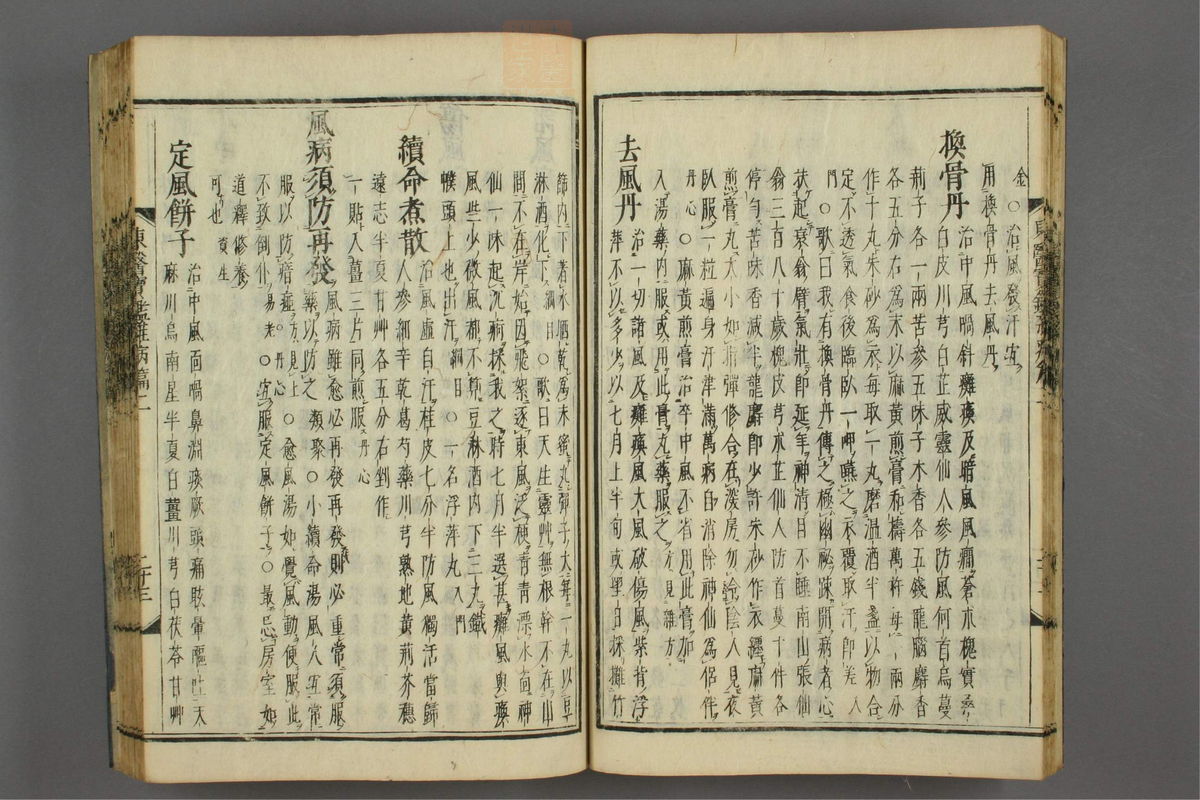 金 ○治風發汗宜
用換骨丹去風丹
換骨丹 治中風喎斜癱瘓及暗風風癎蒼朮槐實桑
各白皮川芎白芷威靈仙人參防風何首烏蔓
荊子各一兩苦參五味子木香各五錢龍腦麝香
各五分右爲末以麻黃煎膏和擣萬杵每一兩分
作十丸朱砂爲衣每取一丸磨溫酒半盞以物合
定不透氣食後臨臥一呷嚥之衣覆取汗卽差入
門○歌曰我有換骨丹傳之極幽秘踈開病者心
扶起衰翁臂氣壯卽延年神淸目不睡南山張仙
翁三百八十歲槐皮芎朮芷仙人防首蔓十件各
停勻苦味香減半龍麝卽少許朱砂作衣纏麻黃
煎膏丸大小如指彈修合在深房勿令陰人見夜
臥服一粒遍身汗津滿萬病自消除神仙爲侶伴
丹心○麻黃煎膏治卒中風不省用此膏加
入湯藥內服或用此膏丸藥服之方見雜方
去風丹 治一切諸風及癱瘓風大風破傷風紫背浮
萍不以多少以七月上半旬或望日採攤竹
篩內下著水晒乾爲末蜜丸彈子大每一丸以豆
淋酒化下綱目○歌曰天生靈艸無根幹不在山
間不在岸始因飛絮逐東風泛梗靑靑漂水面神
仙一味起沉痾採我之時七月半選甚癱風與瘓
風些少微風都不筭豆淋酒內下三丸鐵
幞頭上也出汗綱目○一名浮萍丸入門
續命煮散 治風虛自汗桂皮七分半防風獨活當歸
人參細辛乾葛芍藥川芎熟地黃荊芥穗
遠志半夏甘艸各五分右剉作
一貼入薑三片同煎服丹心
風病須防再發 風病雖愈必再發再發則必重常須服
藥以防之類聚○小續命湯風人宜常
服以防瘖瘂方見上○愈風湯如覺風動便服此
不致倒仆易老○丹心○宜服定風餠子○最忌房室如
道釋修養
可也資生
定風餠子 治中風面喎鼻淵痰厥頭痛眩暈嘔吐天
麻川烏南星半夏白薑川芎白茯苓甘艸
東醫寶鑑雜病篇二
二十三